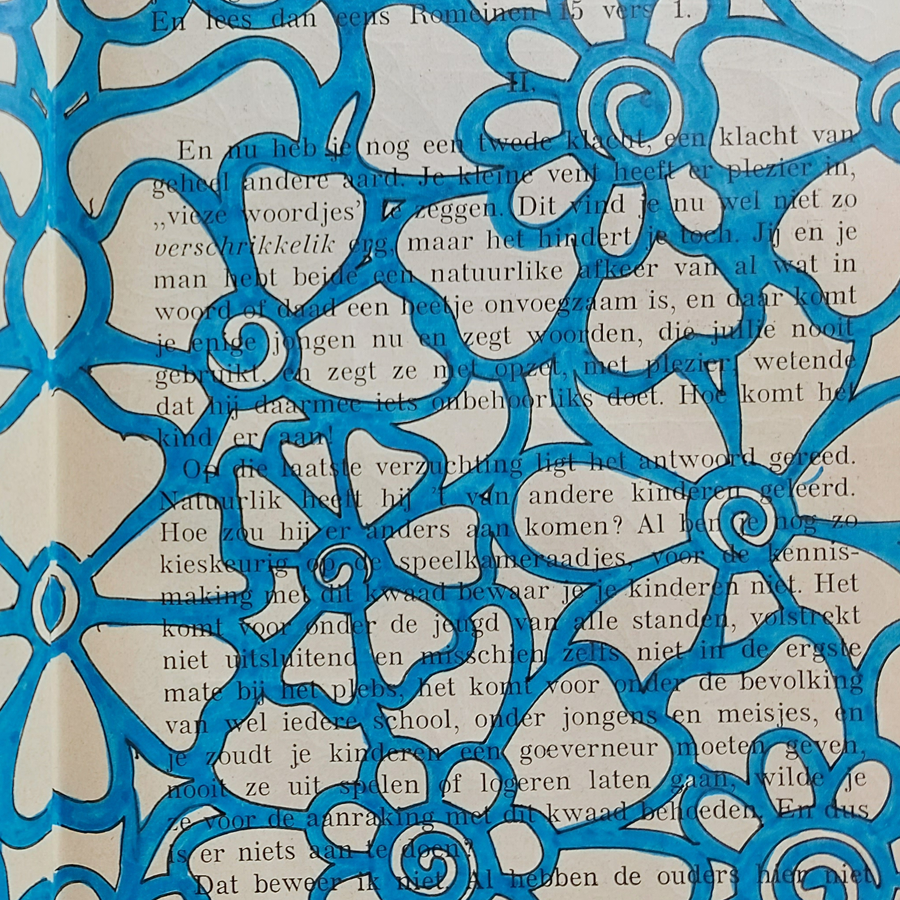 En lees dan eens Romeinen 15 vers 1.
II.
En nu heb je nog een twede klacht, een klacht van
geheel andere aard. Je kleine vent heeft er plezier in,
„vieze woordjes” te zeggen. Dit vind je nu wel niet zo
verschrikkelik erg, maar het hindert je toch. Jij en je
man hebt beide een natuurlike afkeer van al wat in
woord of daad een beetje onvoegzaam is, en daar komt
je enige jongen nu en zegt woorden, die jullie nooit
gebruikt, en zegt ze met opzet, met plezier, wetende
dat hij daarmee iets onbehoorliks doet. Hoe komt het
kind er aan!
Op die laatste verzuchting ligt het antwoord gereed.
Natuurlik heeft hij 't van andere kinderen geleerd.
Hoe zou hij er anders aan komen? Al ben je nog zo
kieskeurig op de speelkameraadjes, voor de kennis-
making met dit kwaad bewaar je je kinderen niet. Het
komt voor onder de jeugd van alle standen, volstrekt
niet uitsluitend en misschien zelfs niet in de ergste
mate bij het plebs, het komt voor onder de bevolking
van wel iedere school, onder jongens en meisjes, en
je zoudt je kinderen een goeverneur moeten geven,
nooit ze uit spelen of logeren laten gaan, wilde je
ze voor de aanraking met dit kwaad behoeden. En dus
is er niets aan te doen?
Dat beweer ik niet. Al hebben de ouders hier niet